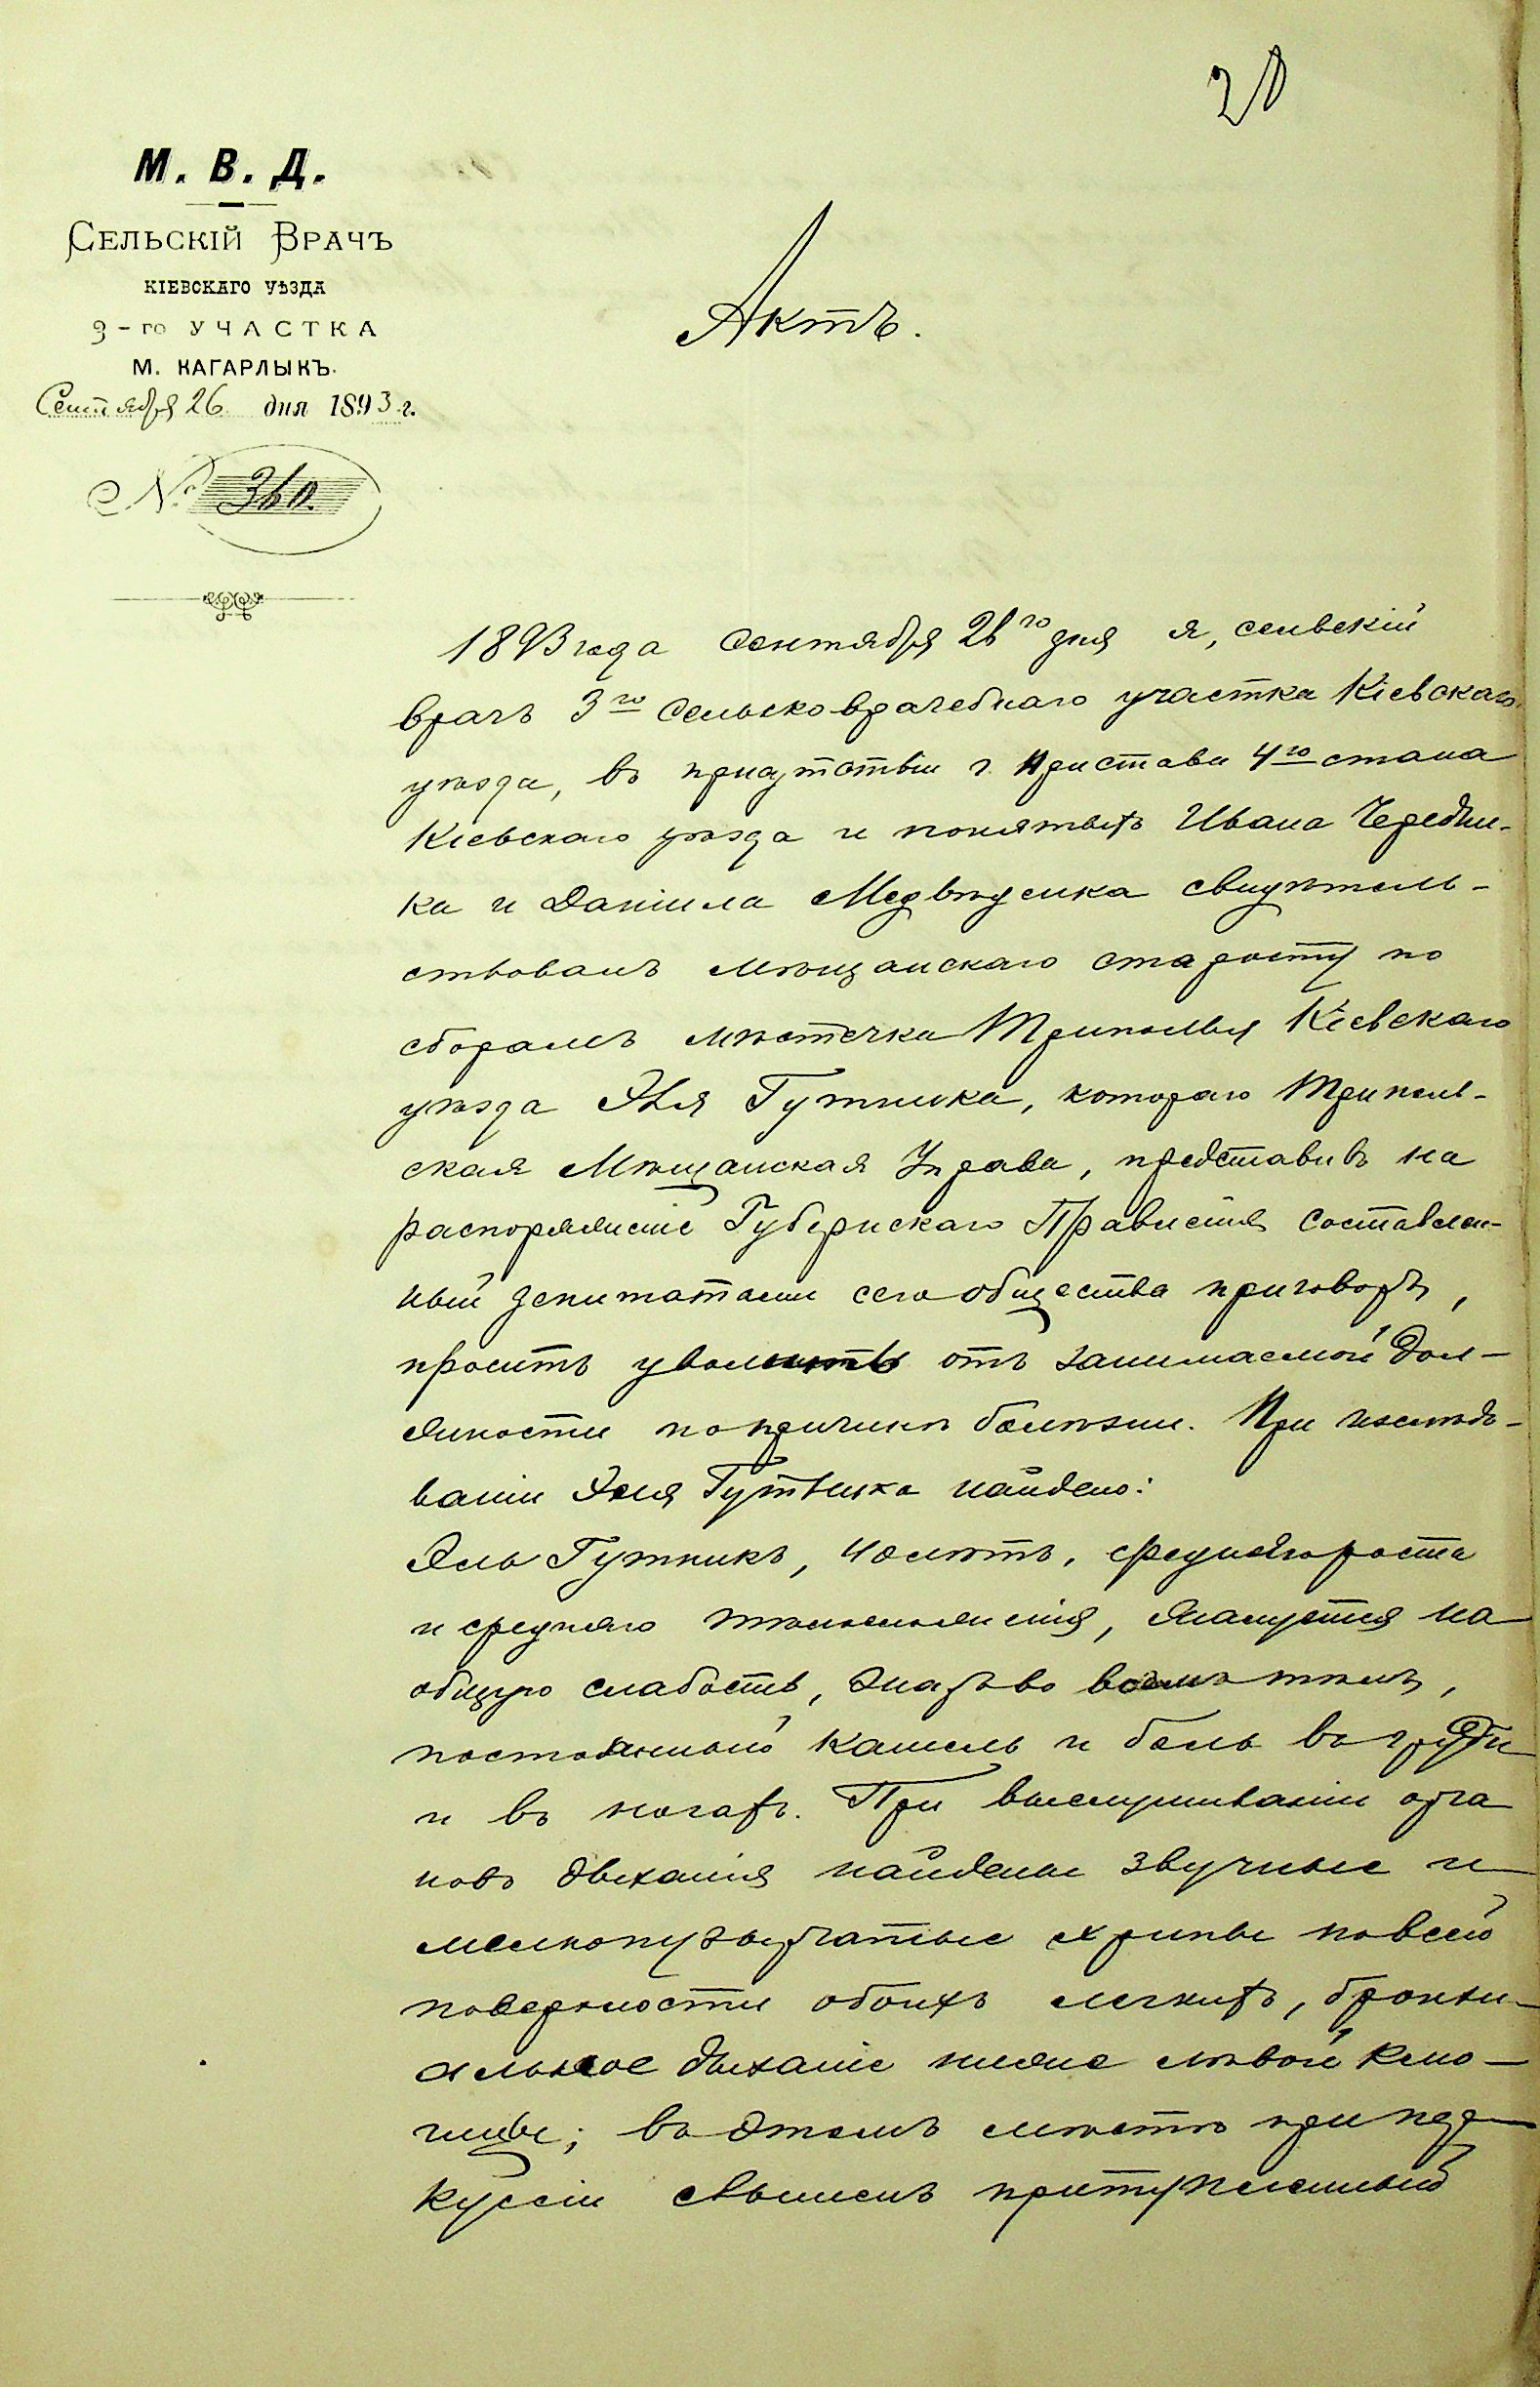 20
М. В. Д.
СЕЛЬСКІЙ ВРАЧЪ
КІЕВСКАГО УѢЗДА
3-го УЧАСТКА
М. КАГАРЛЫКЪ.
Сентября 26 дня 1893 г.
№ 360.
Актъ.
1893 года Сентября 26го дня я, сельскій
врачъ 3го Сельско врачебнаго участка Кіевскаго
уѣзда, въ присутствіи г. Пристава 4го стана
Кіевскаго уѣзда и понятыхъ Ивана Чередни-
ка и Даніила Медвѣденка свидѣтель-
ствовалъ мѣщанскаго старосту по
сборамъ мѣстечка Триполья Кіевскаго
уѣзда Эля Гутника, котораго Триполь-
ская Мѣщанская Управа, представивъ на
распоряженіе Губернскаго Правленія составлен-
ный депутатами сего общества приговоръ,
проситъ уволить отъ занимаемой дол-
жности по причинѣ болѣзни. При изслѣдо-
ваніи Эля Гутника найдено:
Эль Гутникъ, 40 лѣтъ, средняго роста
и средняго тѣлосложенія, жалуется на
общую слабость, жаръ во всемъ тѣлѣ,
постоянный кашель и боль въ груди
и въ ногахъ. При выслушиваніи орга
новъ дыханія найдены звучные и
мелкопузырчатые хрипы по всей
поверхности обоихъ легкихъ, бронхи-
альное дыханіе ниже лѣвой клю-
чицы; въ этомъ мѣстѣ при пер-
куссіи слышенъ притупленный